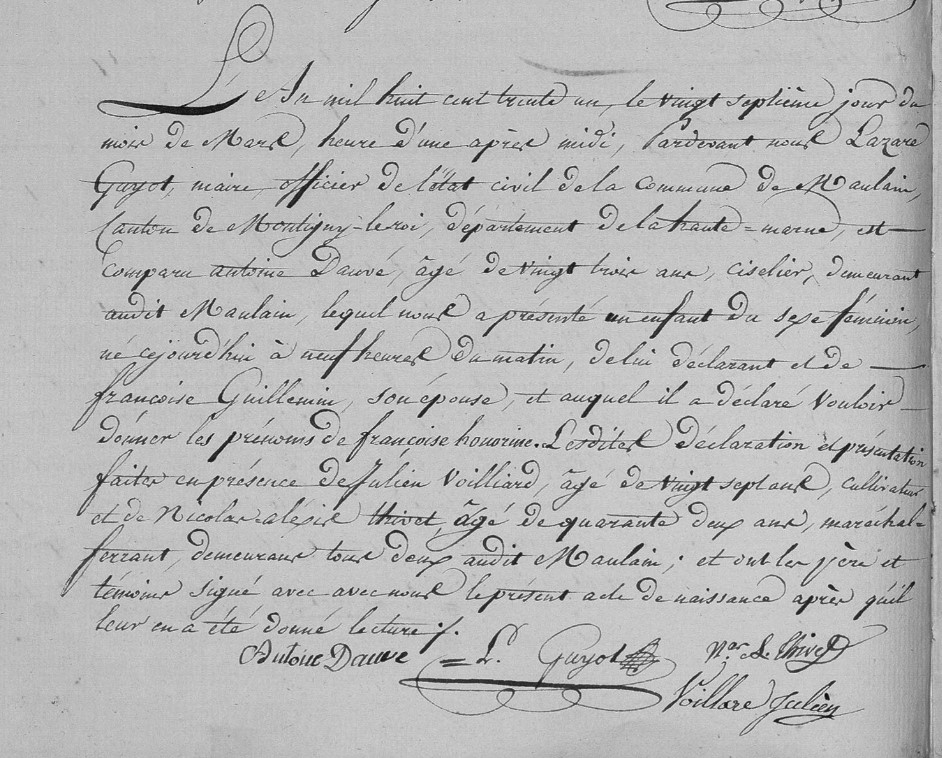 Le An mil huit cent trente un, le vingt septième jour du
mois de Mars, heure d'une après midi, Pardevant nous Lazare
Guyot, maire, officier de l'état civil de la commune de Maulain,
Canton de Montigny-le-roi, département de la haute=marne, est
comparu antoine Dauvé, âgé de vingt trois ans, ciselier, demeurant
audit Maulain, lequel nous a présenté un enfant du sexe féminin,
né cejourd'hui à neuf heures du matin, de lui déclarant et de
françoise Guillemin, son épouse, et auquel il a déclaré vouloir
donner les prénoms de françoise honorine. Lesdites déclaration et présentation
faites en présence de Julien Voilliard, âgé de vingt sept ans, cultivateur
et de Nicolas-alexis thivet, âgé de quarante deux ans, maréchal-
ferrant, demeurans tous deux audit Maulain ; et ont les père et
témoins signé avec avec nous le présent acte de naissance après qu'il
leur en a été donné lecture ./.
Antoine Dauve = L. Guyot Nas. A. Thivet
Voillare Julien